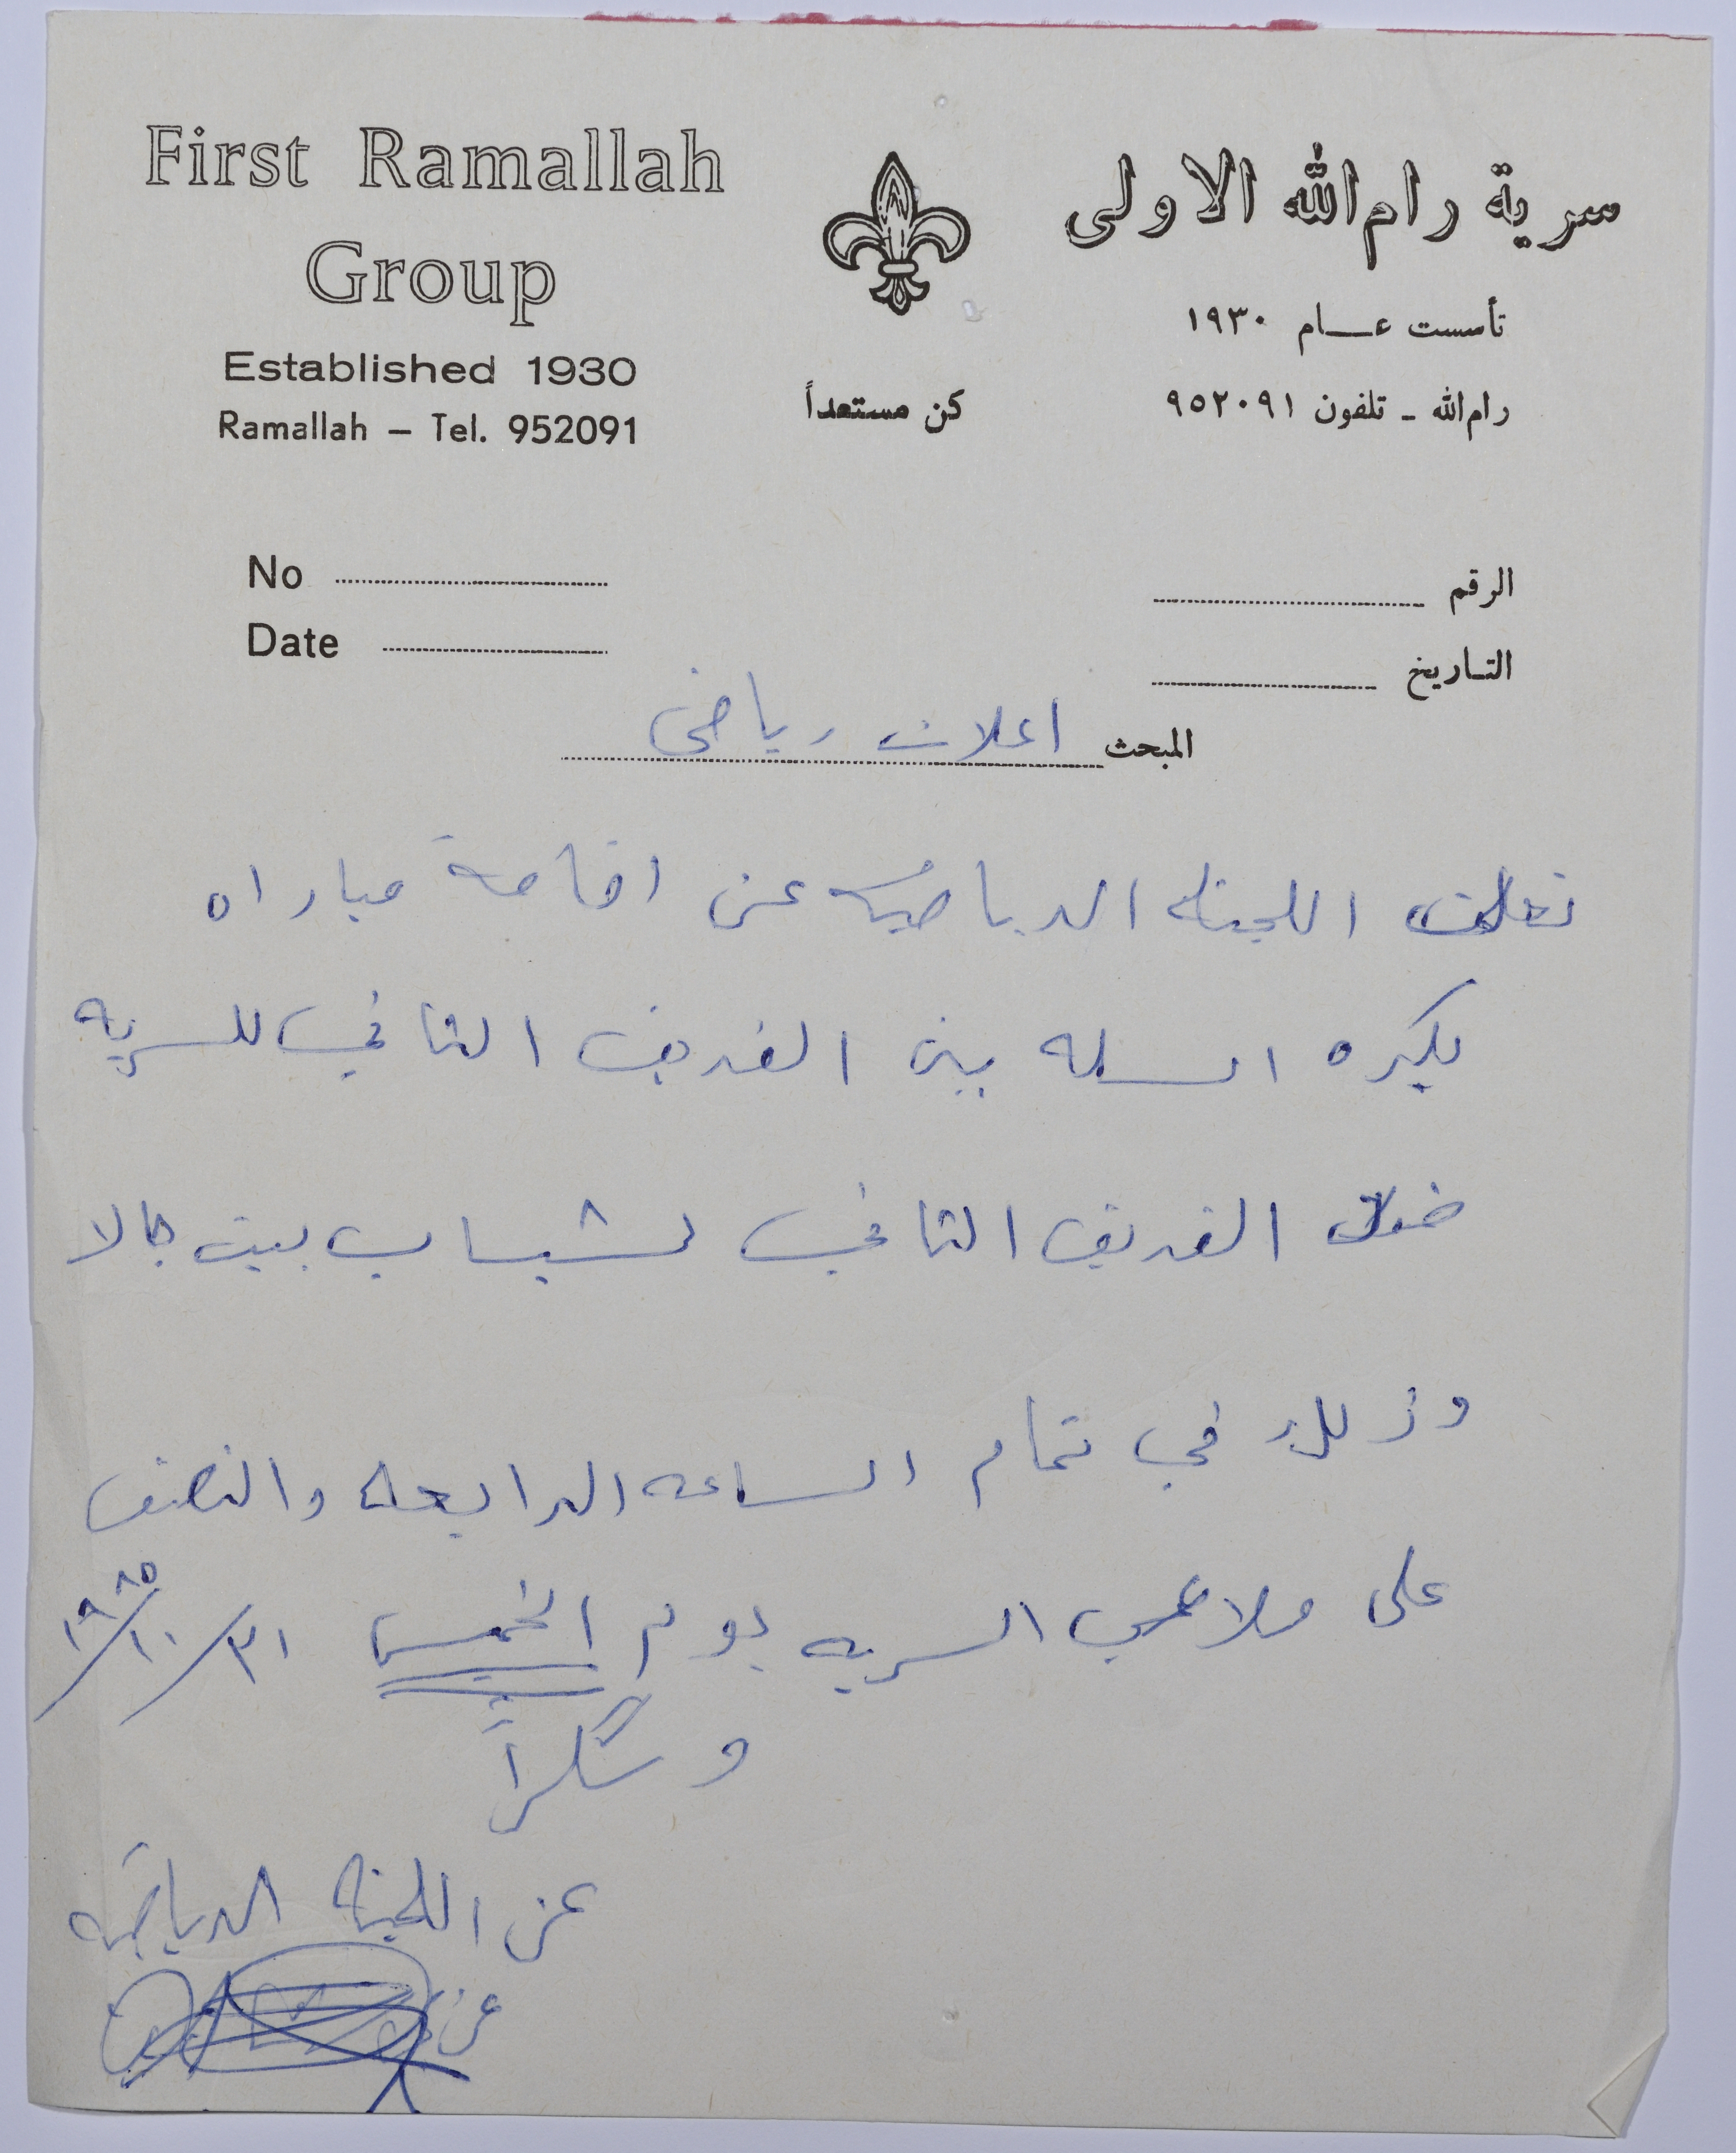 First Ramallah
Group
Established 1930
Ramallah – Tel. 952091
سرية رام الله الاولى
تأسست عام ١٩٣٠
رام الله - تلفون ٩٥٢٠٩١
كن مستعداً
No
Date
الرقم
التاريخ
المبحث اعلان رياضي
تعلن اللجنه الرياضيه عن اقامة مباراه
بكره السله بين الفريق الثاني للسريه
ضد الفريق الثاني لشباب بيت جالا
وذلك في تمام الساعه الرابعه والنصف
على ملاعب السريه يوم الخميس ٣١/١٠/١٩٨٥
وشكراً
عن اللجنه الرياضيه